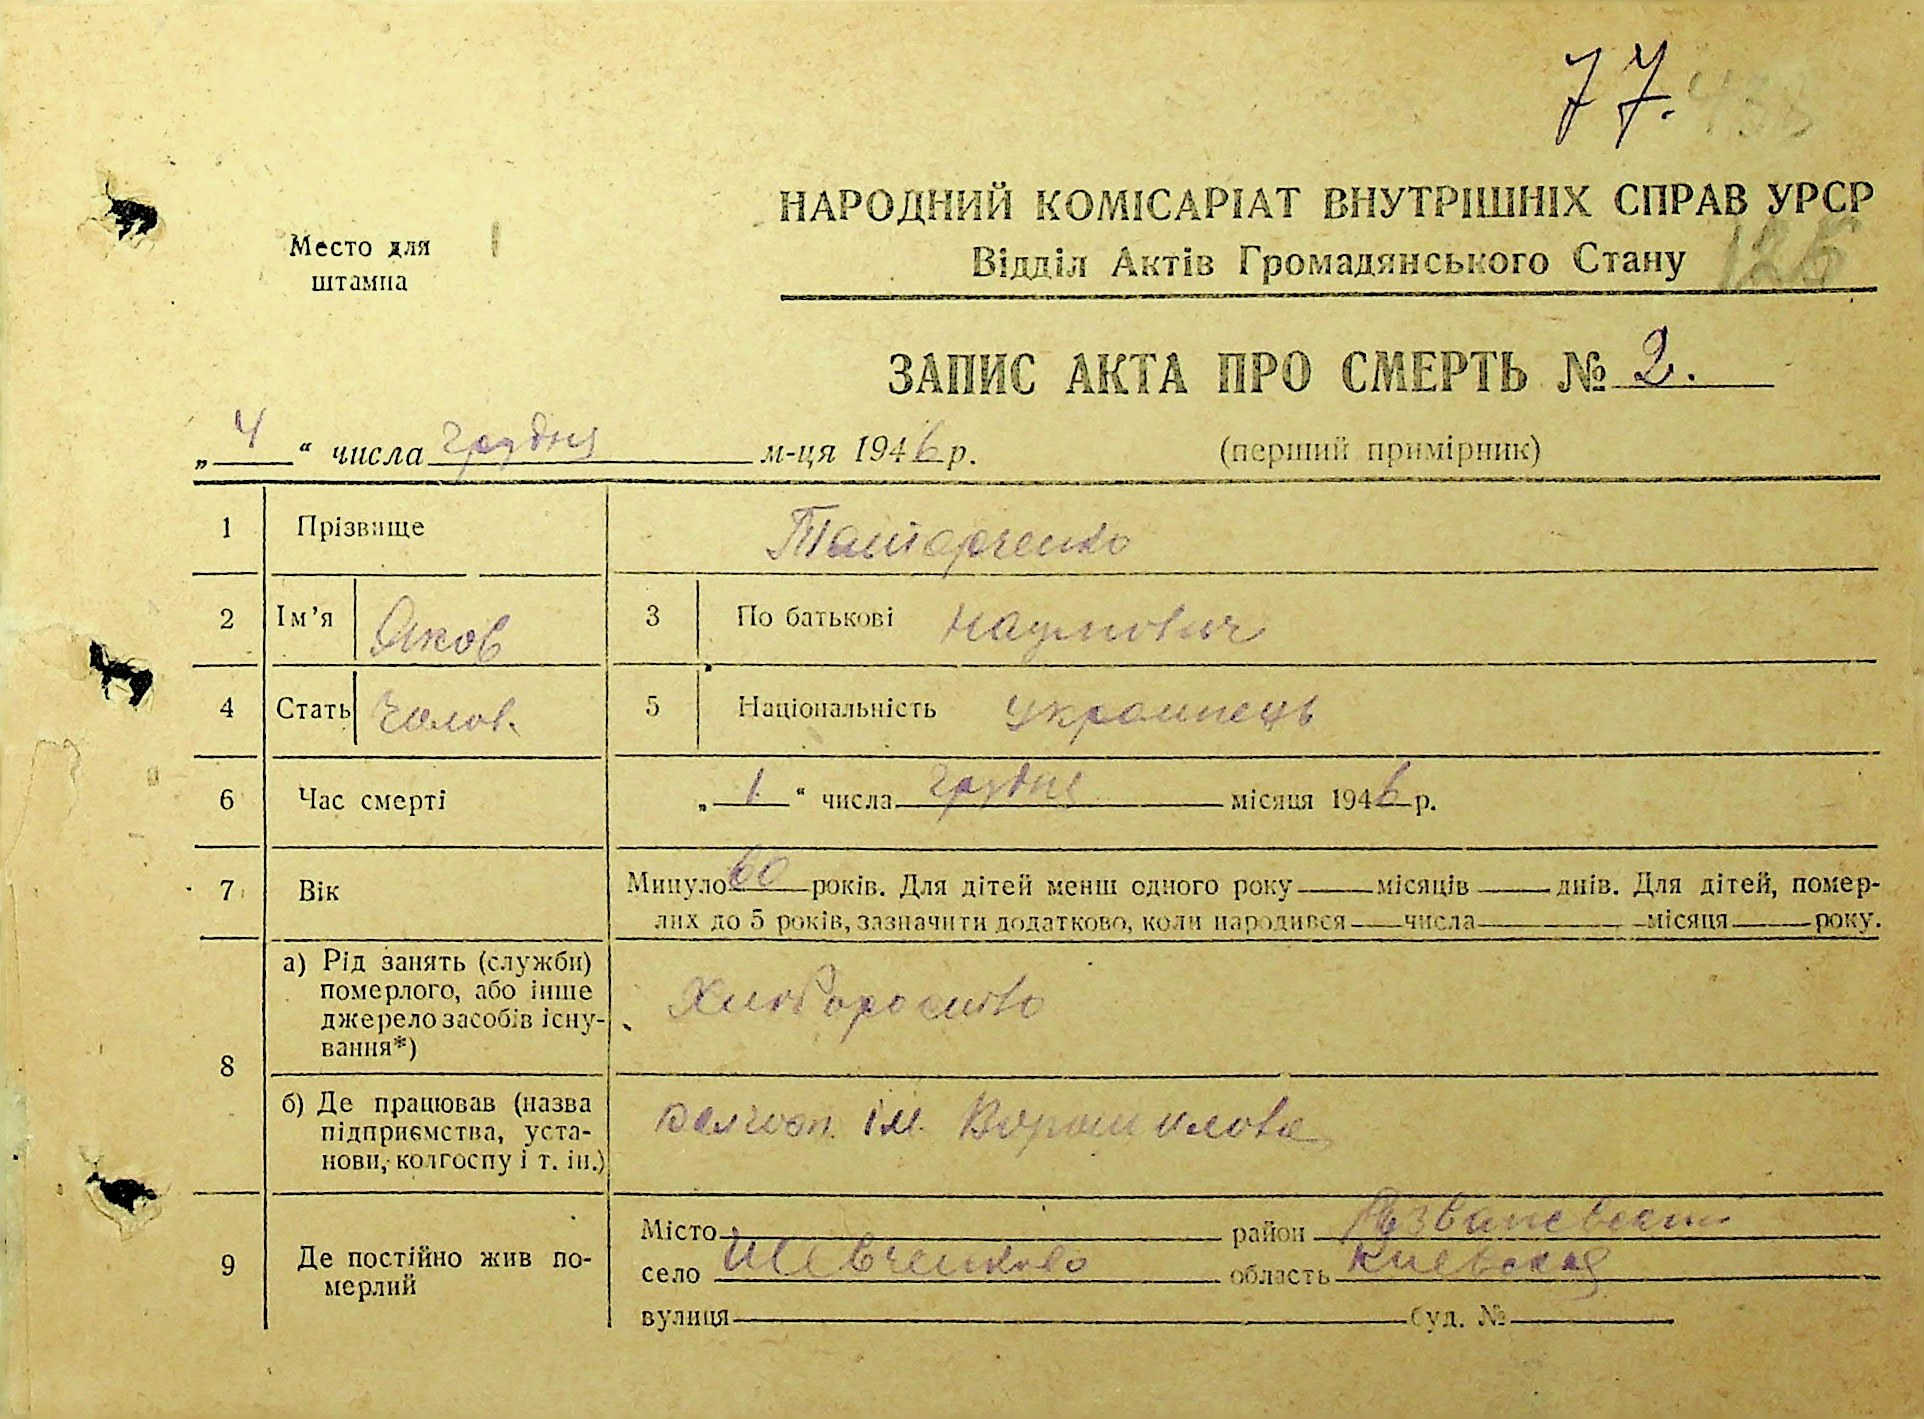 77. 458
НАРОДНИЙ КОМІСАРІАТ ВНУТРІШНІХ СПРАВ УРСР
Место для штампа
Відділ Актів Громадянського Стану 126
ЗАПИС АКТА ПРО СМЕРТЬ № 2.
„ 4 “ числа грудня м-ця 1946 р. (перший примірник)
1 Прізвище Татарченко
2 Ім’я Яков 3 По батькові Наумович
4 Стать Чолов. 5 Національність Украинець
6 Час смерті „ 1. “ числа грудня місяця 1946 р.
7 Вік Минуло 60 років. Для дітей менш одного року місяців днів. Для дітей, помер-
лих до 5 років, зазначити додатково, коли народився числа місяця року.
8 а) Рід занять (служби)
померлого, або інше
джерело засобів існу-
вання*)
Хлиборобство
б) Де працював (назва
підприємства, уста-
нови, колгоспу і т. ін.)
колгосп. ім. Ворошилова
9 Де постійно жив по-
мерлий
Місто район
село Шевченково область Киевская
вулиця буд. №